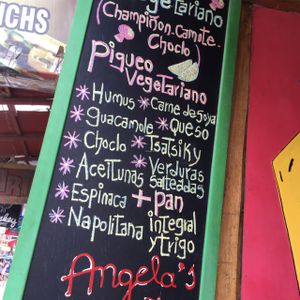 NCHS
getariano
(Champiñon-Camote-
Choclo)
Piqueo
Vegetariano
* Humus * Carne de soya
* Guacamole * Queso
* Choclo * Tsatsiky
* Aceitunas * Verduras salteadas
* Espinaca + Pan
* Napolitana integral
y trigo
Angela's